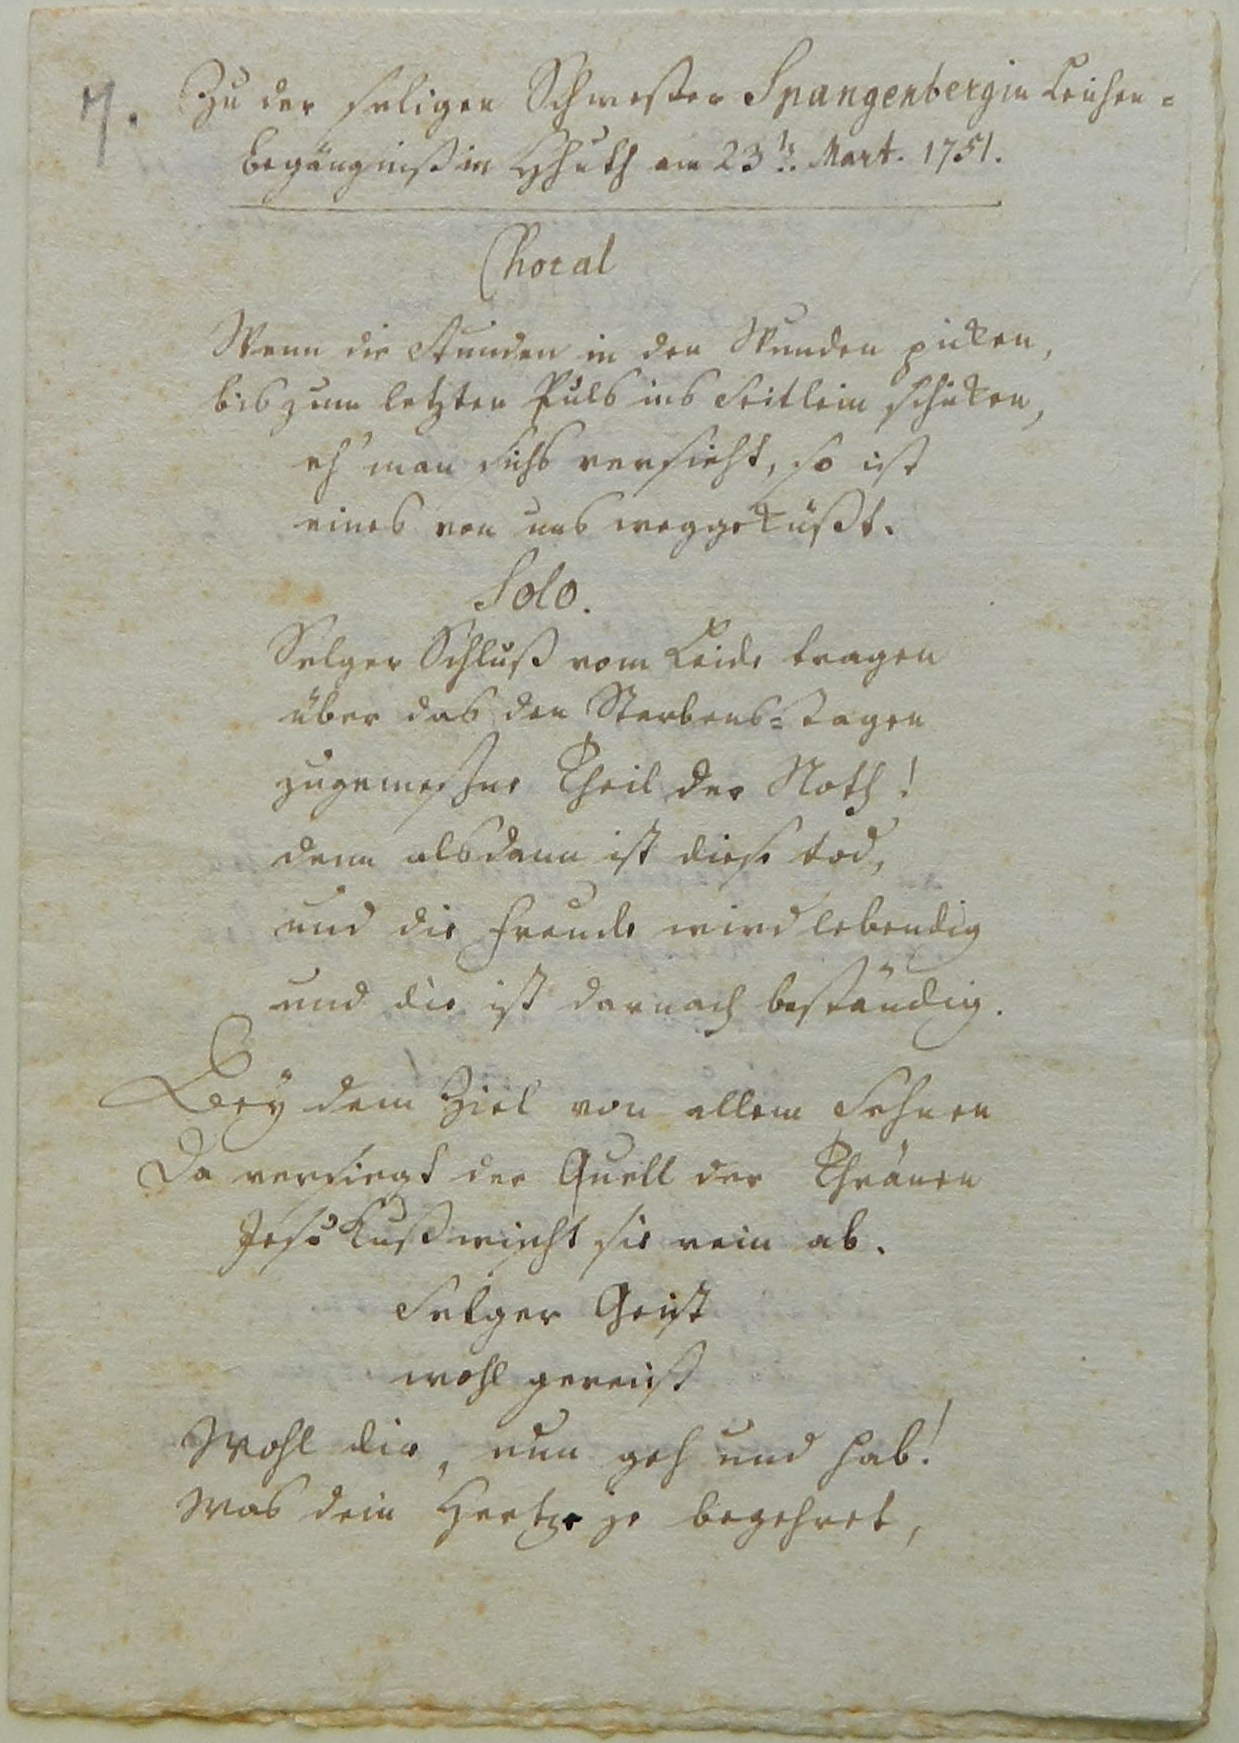 7.
Zu der seligen Schwester Spangenbergin Leichen=
begängniß in Hhuth am 23ts. Mart. 1751.
Choral
Wenn die Stunden in den Wunden picken,
bis zum letzten Puls ins Seitlein schicken,
eh' man sichs versieht, so ist
eines von uns weggeküßt.
Solo.
Selger Schluß vom Leide tragen
über das den Sterbens=tagen
zugemeßne Theil der Noth!
denn alsdann ist diese tod,
und die Freude wird lebendig
und die ist darnach beständig.
Bey dem Ziel von allem Sehnen
Da versiegt der Quell der Thränen
Jesu Kuß wischt sie rein ab.
Selger Geist
wohl gereist
Wohl dir, nun geh und hab!
Was dein Hertze je begehret,